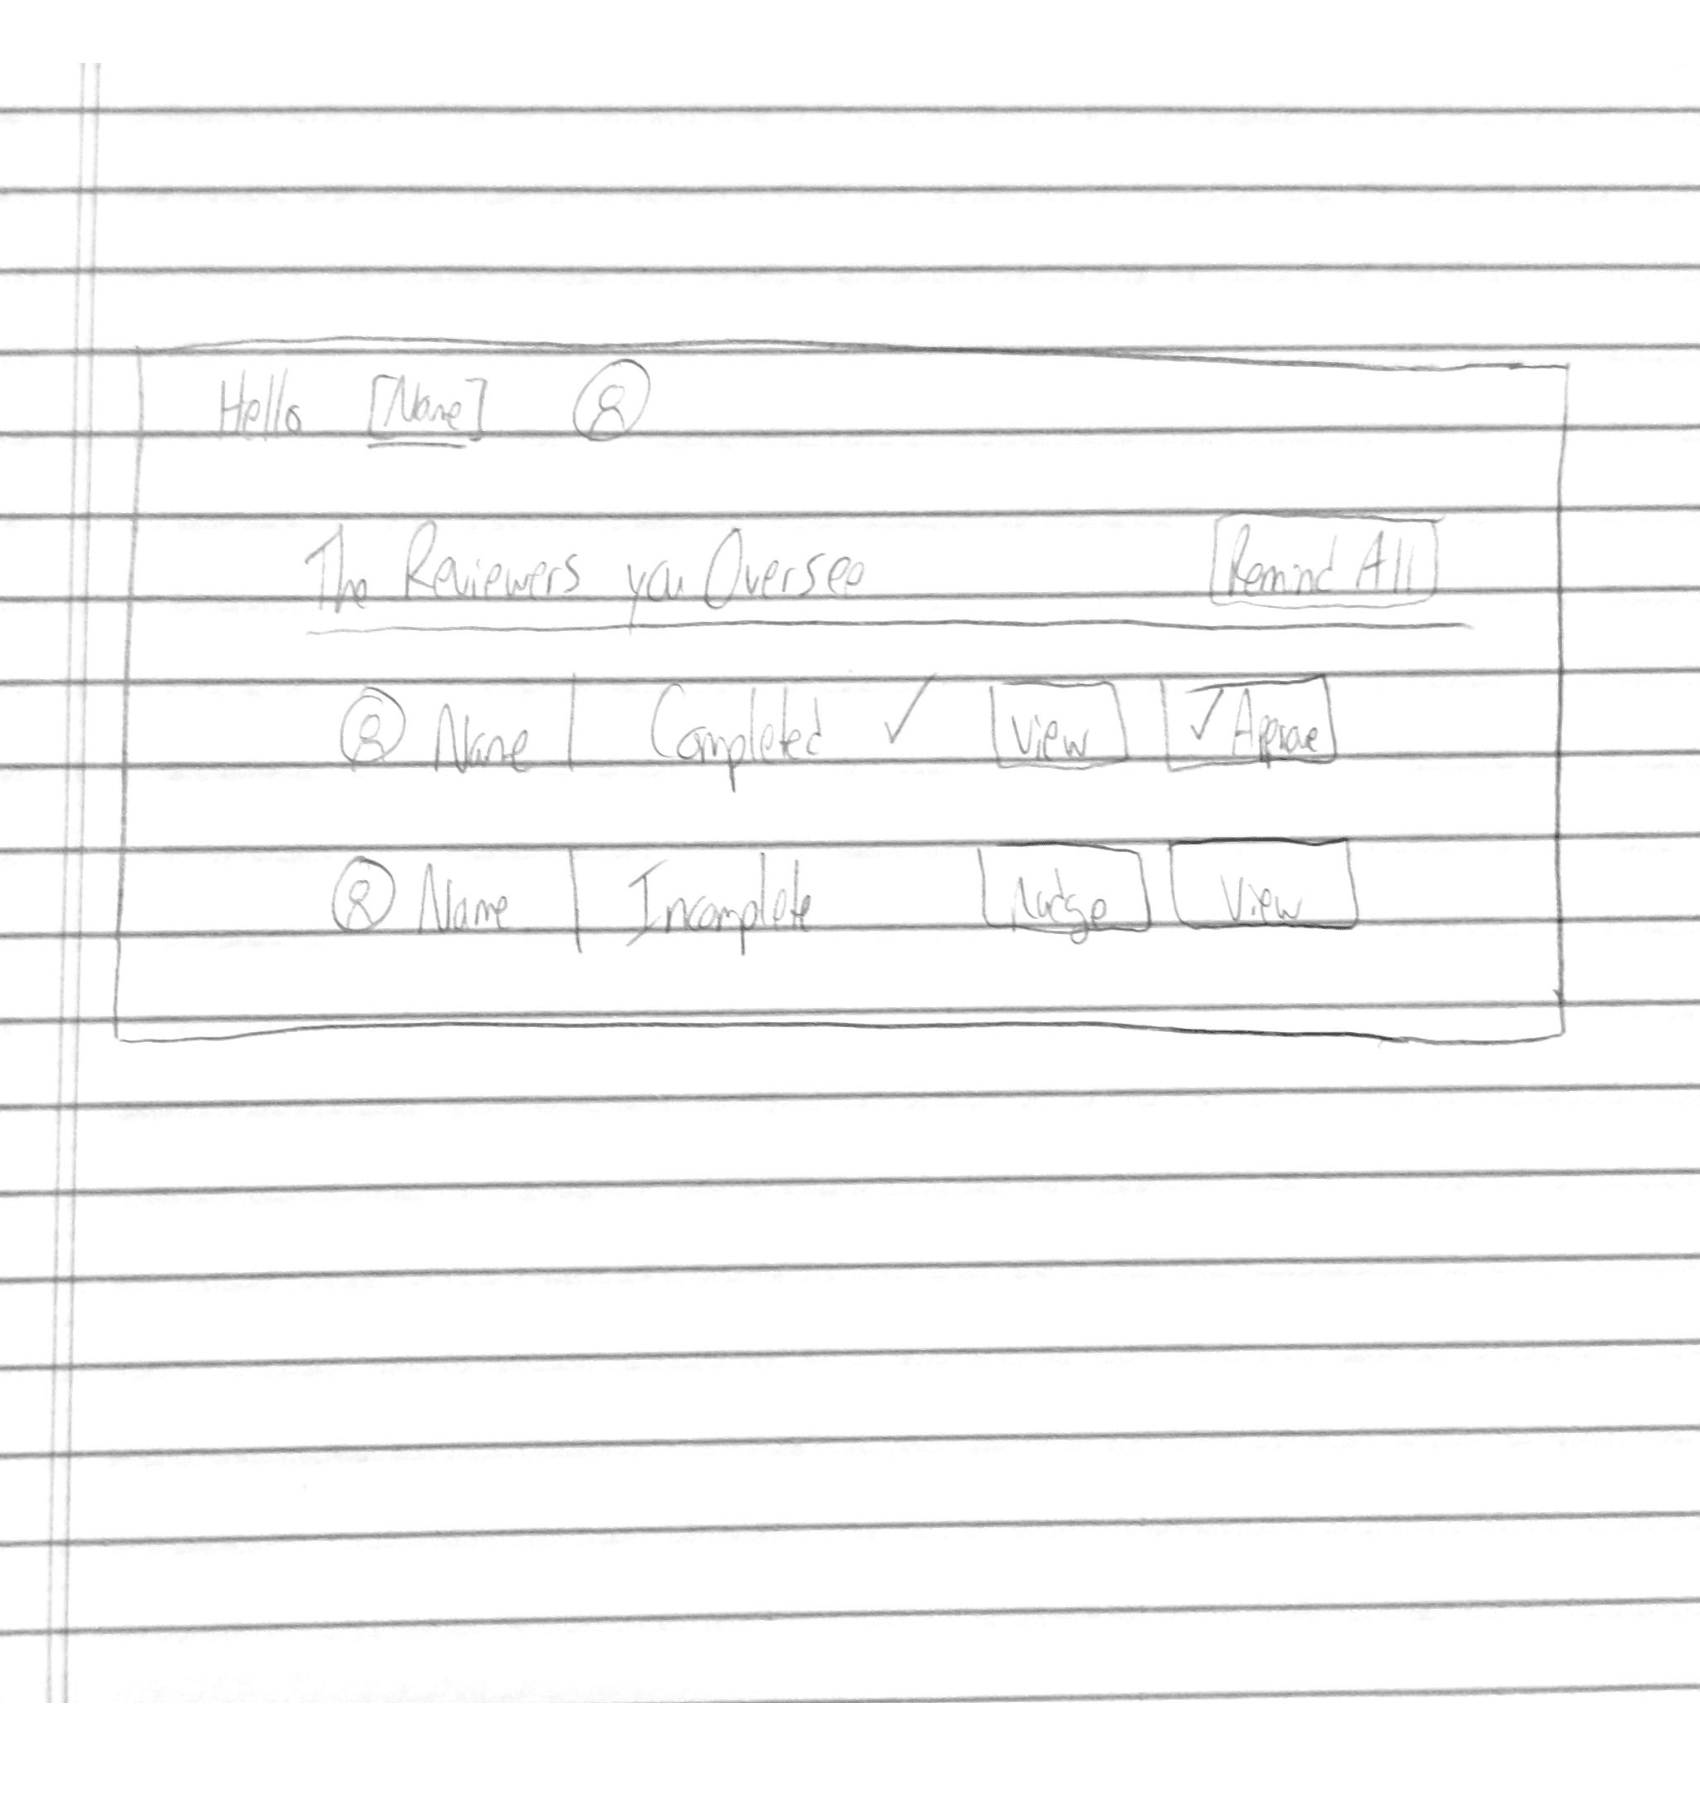 Hello [Name]
The Reviewers you Oversee Remind All
Name | Completed ✓ View ✓ Approve
Name | Incomplete Nudge View